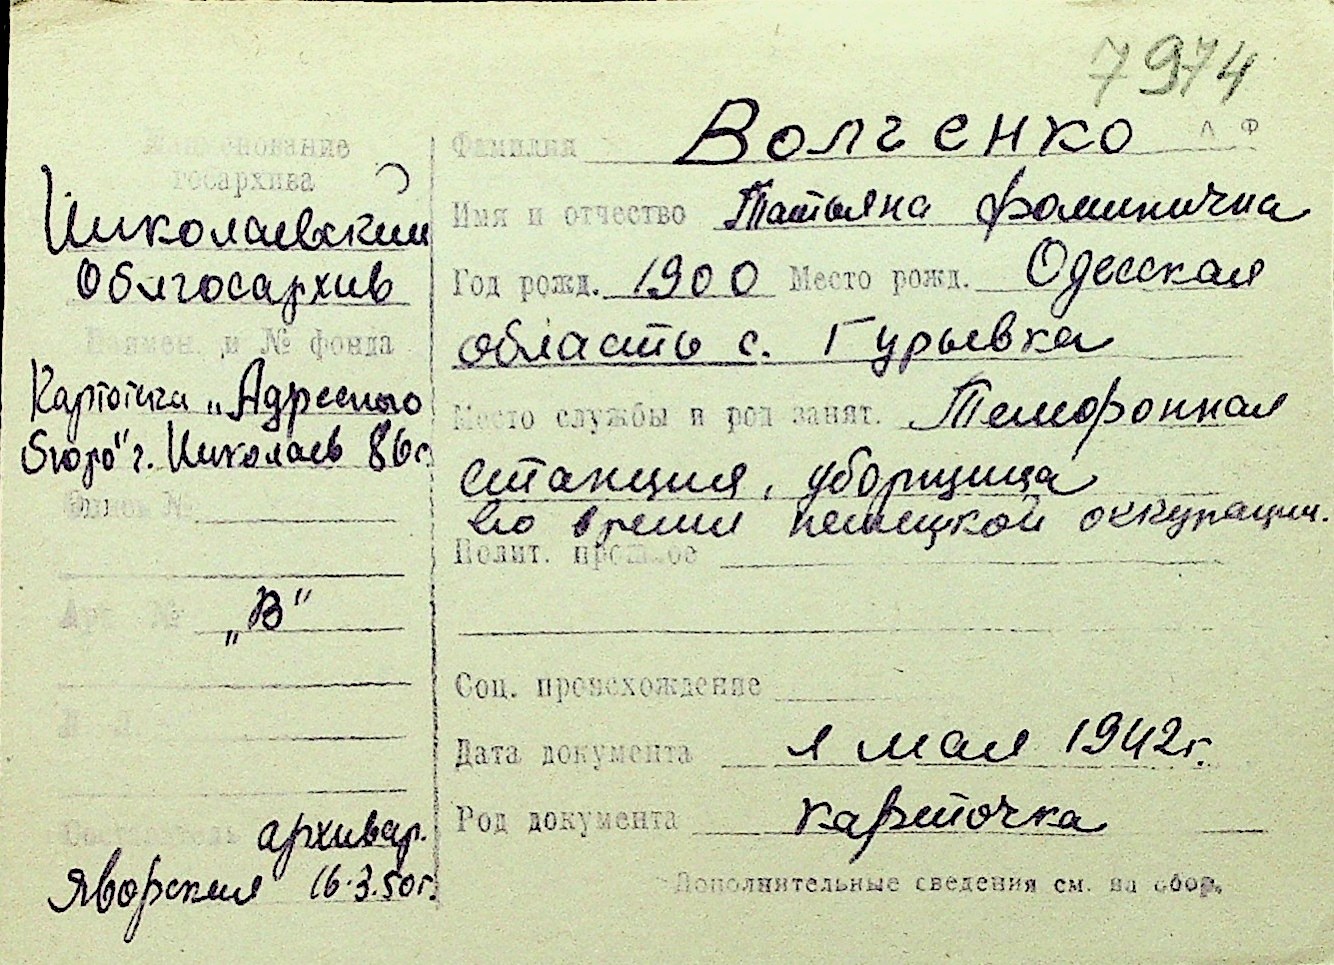 7974
Наименование
госархива
Николаевский
Облгосархив
Наимен. и № фонда
Картотека „Адресного
бюро" г. Николаев
Описи №
„В"
Составитель архивар.
Яворская 16.3.50г.
Фамилия Волченко
Имя и отчество Татьяна Фоминична
Год рожд. 1900 Место рожд. Одесская
область с. Гурьевка
Место службы и род занят. Телефонная
станция, уборщица
во время немецкой оккупации.
Полит. прошлое
Соц. происхождение
Дата документа 1 мая 1942г.
Род документа карточка
Дополнительные сведения см. на обор.